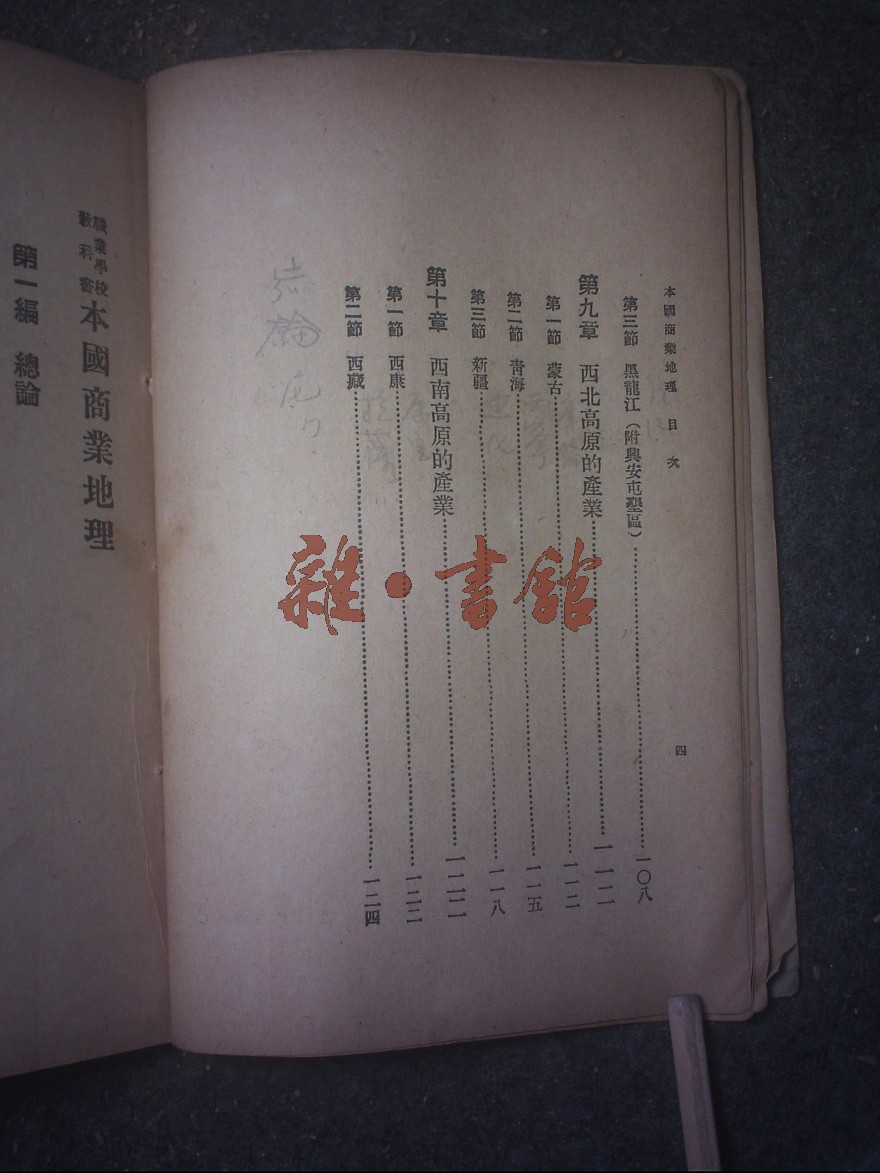 本國商業地理 目次
四
第三節 黑龍江(附興安屯墾區)⋯⋯一〇八
第九章 西北高原的產業⋯⋯一一二
第一節 蒙古⋯⋯一一二
第二節 青海⋯⋯一一五
第三節 新疆⋯⋯一一八
第十章 西南高原的產業⋯⋯一二二
第一節 西康⋯⋯一二二
第二節 西藏⋯⋯一二四
雜·書館
職業學校教科書 本國商業地理
第一編 總論